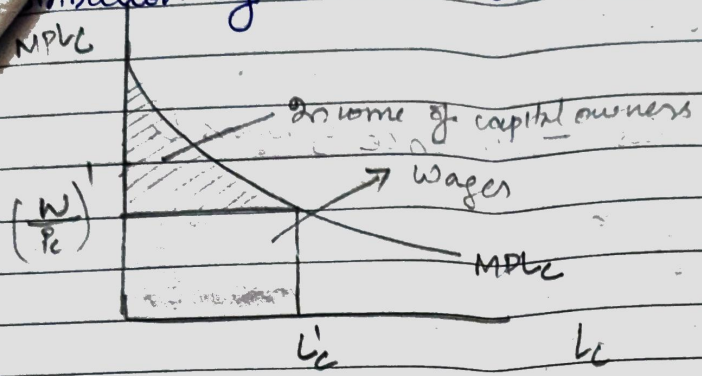 MPLc
Income of capital owners
Wages
(W/Pc)'
MPLc
L'c
Lc